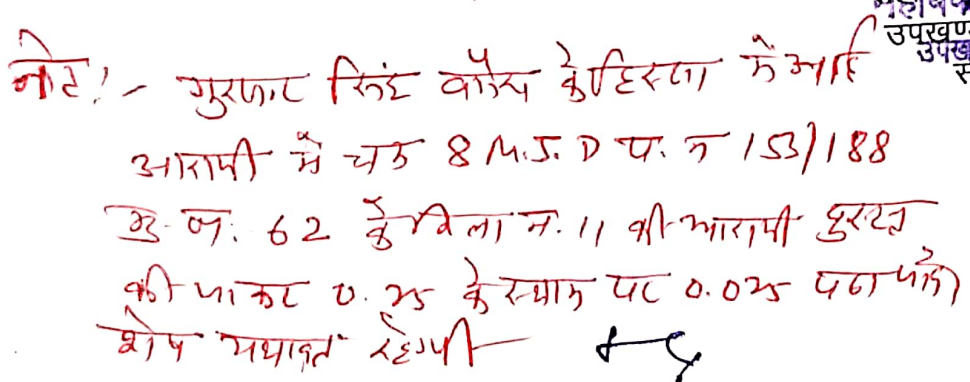 उपखण्ड
नोट:- गुरजाट सिंह वगैरा के हिस्सा में आई
आराजी में चक 8 M.J.D प. न 153/188
मु. न. 62 के किला न. 11 की आराजी दुरस्त
की जाकर 0.25 के स्थान पर 0.025 पढा जावे।
शेष यथावत रहेगी